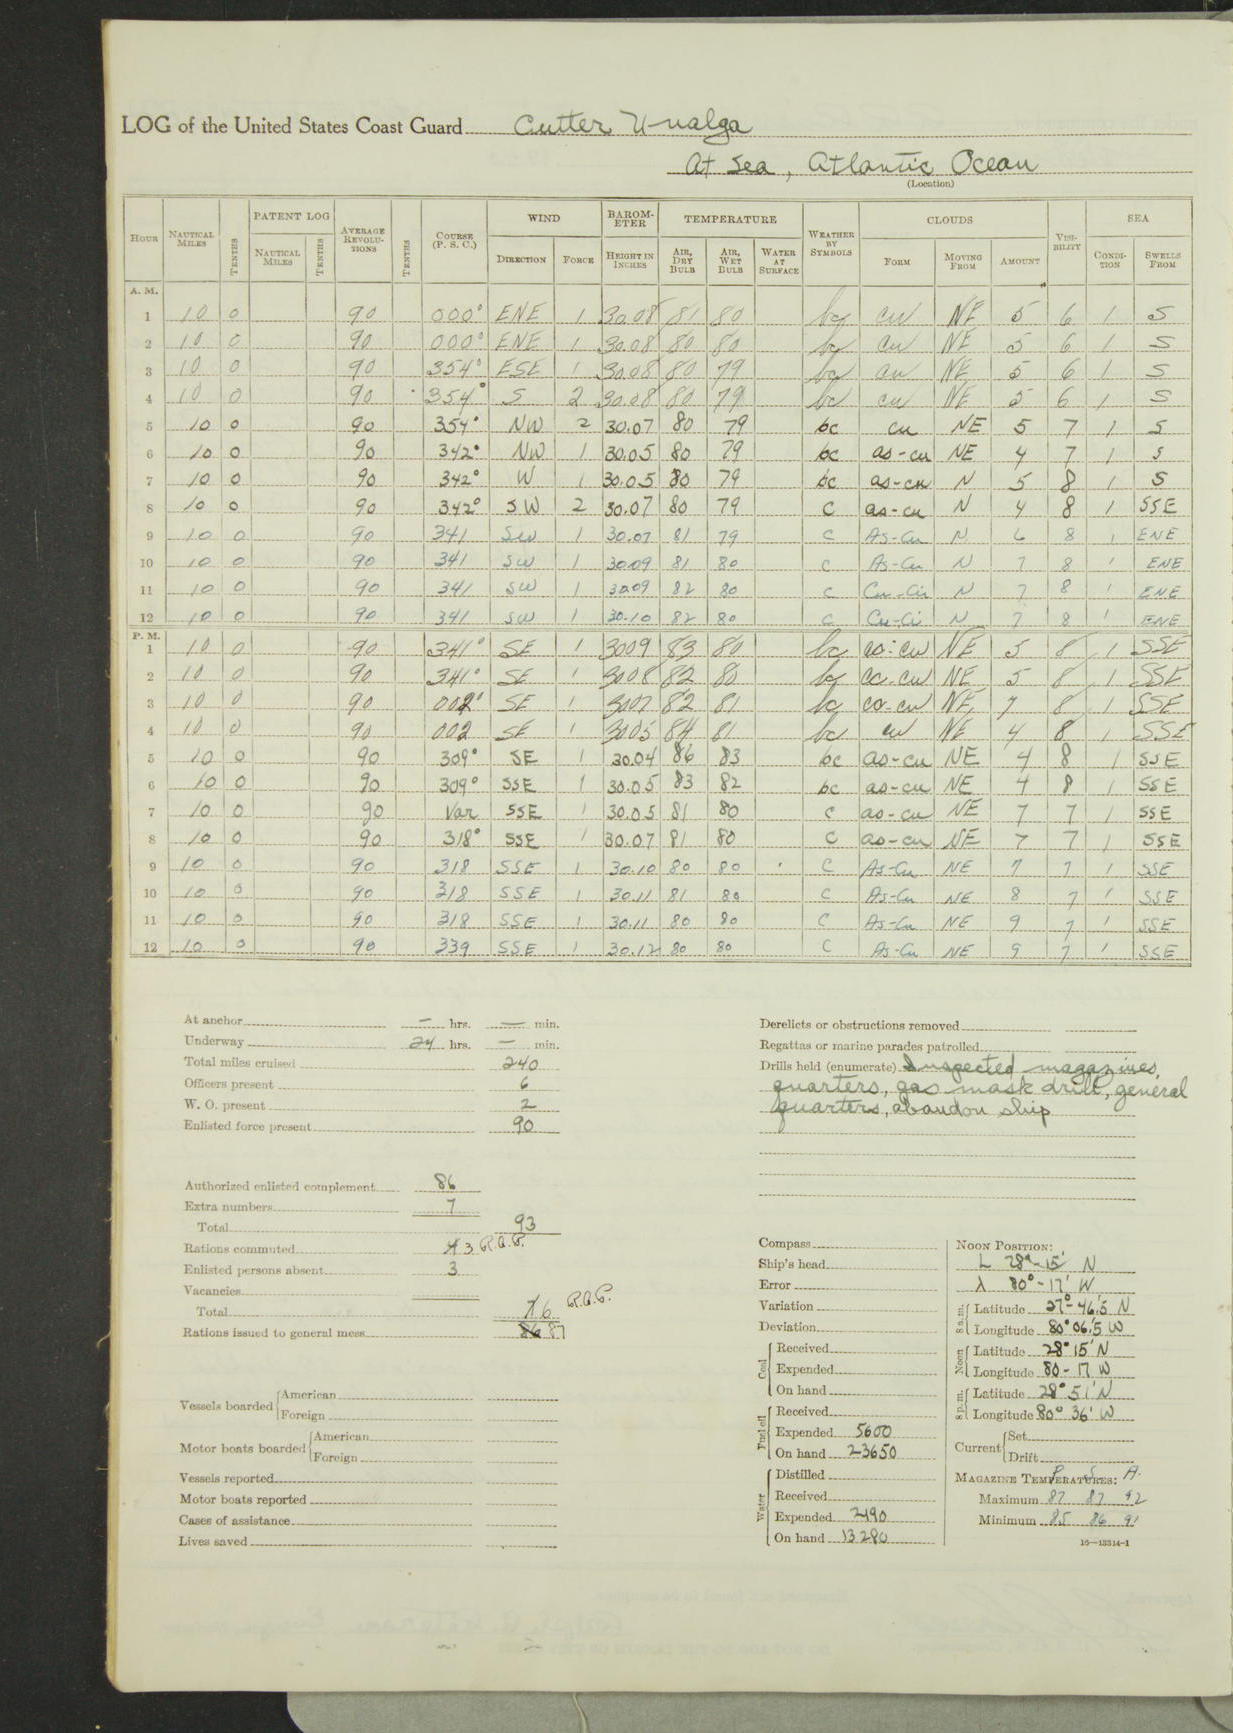 LOG of the United States Coast Guard Cutter Unalga
At Sea, Atlantic Ocean
(Location)
HOUR NAUTICAL MILES TENTHS PATENT LOG NAUTICAL MILES TENTHS AVERAGE REVOLUTIONS TENTHS COURSE (P. S. C.) WIND DIRECTION FORCE BAROMETER HEIGHT IN INCHES TEMPERATURE AIR, DRY BULB AIR, WET BULB WATER AT SURFACE WEATHER BY SYMBOLS CLOUDS FORM MOVING FROM AMOUNT VISIBILITY SEA CONDITION SWELLS FROM
A. M.
1 10 0 90 000° ENE 1 30.08 81 80 bc cu NE 5 6 1 S
2 10 0 90 000° ENE 1 30.08 80 80 bc cu NE 5 6 1 S
3 10 0 90 354° ESE 1 30.08 80 79 bc cu NE 5 6 1 S
4 10 0 90 354° S 2 30.08 80 79 bc cu NE 5 6 1 S
5 10 0 90 354° NW 2 30.07 80 79 bc cu NE 5 7 1 S
6 10 0 90 342° NW 1 30.05 80 79 bc as-cu NE 4 7 1 S
7 10 0 90 342° W 1 30.05 80 79 bc as-cu N 5 8 1 S
8 10 0 90 342° SW 2 30.07 80 79 c as-cu N 4 8 1 SSE
9 10 0 90 341 SW 1 30.07 81 79 c As-Cu N 6 8 1 ENE
10 10 0 90 341 SW 1 30.09 81 80 c As-Cu N 7 8 1 ENE
11 10 0 90 341 SW 1 30.09 82 80 c Cu-Ci N 7 8 1 ENE
12 10 0 90 341 SW 1 30.10 82 80 c Cu-Ci N 7 8 1 ENE
P. M.
1 10 0 90 341° SE 1 3009 83 80 bc NE 5 8 1 SSE
2 10 0 90 341° SE 1 3008 82 80 bc NE 5 8 1 SSE
3 10 0 90 002° SE 1 3007 82 81 bc NE 7 8 1 SSE
4 10 0 90 002 SE 1 3005 84 81 bc cu NE 4 8 1 SSE
5 10 0 90 309° SE 1 30.04 86 83 bc as-cu NE 4 8 1 SSE
6 10 0 90 309° SSE 1 30.05 83 82 bc as-cu NE 4 8 1 SSE
7 10 0 90 Var SSE 1 30.05 81 80 c as-cu NE 7 7 1 SSE
8 10 0 90 318° SSE 1 30.07 81 80 c as-cu NE 7 7 1 SSE
9 10 0 90 318 SSE 1 30.10 80 80 c As-Cu NE 7 7 1 SSE
10 10 0 90 318 SSE 1 30.11 81 80 c As-Cu NE 8 7 1 SSE
11 10 0 90 318 SSE 1 30.11 80 80 c As-Cu NE 9 7 1 SSE
12 10 0 90 339 SSE 1 30.12 80 80 c As-Cu NE 9 7 1 SSE
At anchor — hrs. — min.
Underway 24 hrs. — min.
Total miles cruised 240
Officers present 6
W. O. present 2
Enlisted force present 90
Authorized enlisted complement 86
Extra numbers 7
Total 93
Rations commuted 3 P.A.P.
Enlisted persons absent 3
Vacancies
Total 6 P.A.P.
Rations issued to general mess 86 87
Vessels boarded American
Foreign
Motor boats boarded American
Foreign
Vessels reported
Motor boats reported
Cases of assistance
Lives saved
Derelicts or obstructions removed
Regattas or marine parades patrolled
Drills held (enumerate) Inspected magazines,
quarters, gas mask drill, general
quarters, abandon ship
Compass
Ship's head
Error
Variation
Deviation
Coal Received
Expended
On hand
Fuel oil Received
Expended 5600
On hand 23650
Water Distilled
Received
Expended 2490
On hand 13280
NOON POSITION:
L 28°-15' N
λ 80°-17' W
8 a.m. Latitude 27°-46.5 N
Longitude 80° 06.5 W
Noon Latitude 28° 15' N
Longitude 80-17 W
8 p.m. Latitude 28° 51' N
Longitude 80° 36' W
Current Set
Drift
MAGAZINE TEMPERATURES: P S A.
Maximum 87 87 92
Minimum 85 86 91
16—13314-1